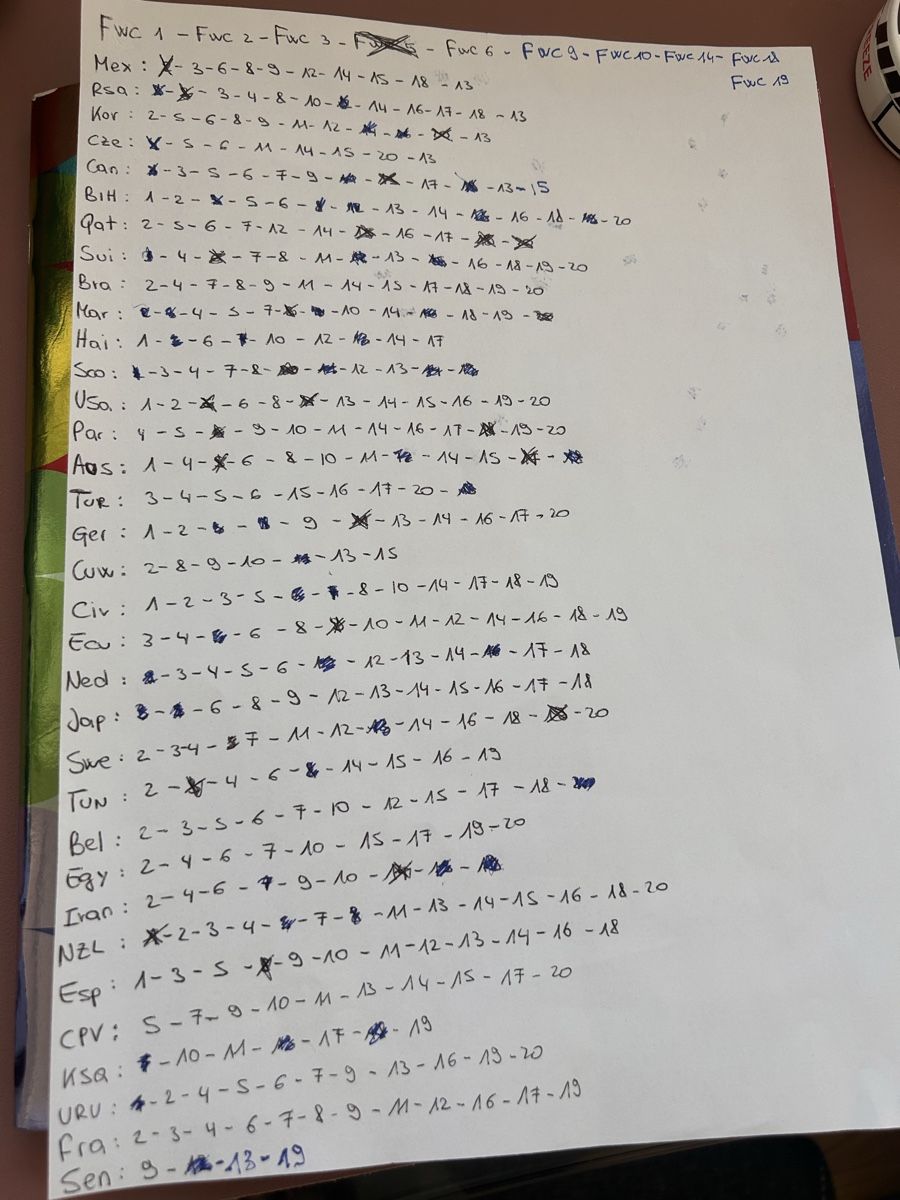 Fwc 1 - Fwc 2 - Fwc 3 - - Fwc 6 - Fwc 9 - Fwc 10 - Fwc 14 - Fwc 18
Fwc 19
Mex: - 3 - 6 - 8 - 9 - 12 - 14 - 15 - 18 - 13
Rsa: - - 3 - 4 - 8 - 10 - - 14 - 16 - 17 - 18 - 13
Kor: 2 - 5 - 6 - 8 - 9 - 11 - 12 - - - - 13
Cze: - 5 - 6 - 11 - 14 - 15 - 20 - 13
Can: - 3 - 5 - 6 - 7 - 9 - - - 17 - - 13 - 15
BIH: 1 - 2 - - 5 - 6 - - - 13 - 14 - - 16 - 18 - - 20
Qat: 2 - 5 - 6 - 7 - 12 - 14 - - 16 - 17 - -
Sui: - 4 - - 7 - 8 - 11 - - 13 - - 16 - 18 - 19 - 20
Bra: 2 - 4 - 7 - 8 - 9 - 11 - 14 - 15 - 17 - 18 - 19 - 20
Mar: - - 4 - 5 - 7 - - - 10 - 14 - - 18 - 19 -
Hai: 1 - - 6 - - 10 - 12 - - 14 - 17
Sco: - 3 - 4 - 7 - 8 - - - 12 - 13 - -
Usa: 1 - 2 - - 6 - 8 - - 13 - 14 - 15 - 16 - 19 - 20
Par: 4 - 5 - - 9 - 10 - 11 - 14 - 16 - 17 - - 19 - 20
Aus: 1 - 4 - - 6 - 8 - 10 - 11 - - 14 - 15 - -
TUR: 3 - 4 - 5 - 6 - 15 - 16 - 17 - 20 -
Ger: 1 - 2 - - - 9 - - 13 - 14 - 16 - 17 - 20
Cuw: 2 - 8 - 9 - 10 - - 13 - 15
Civ: 1 - 2 - 3 - 5 - - - 8 - 10 - 14 - 17 - 18 - 19
Ecu: 3 - 4 - - 6 - 8 - - 10 - 11 - 12 - 14 - 16 - 18 - 19
Ned: - 3 - 4 - 5 - 6 - - 12 - 13 - 14 - - 17 - 18
Jap: - - 6 - 8 - 9 - 12 - 13 - 14 - 15 - 16 - 17 - 18
Swe: 2 - 3 - 4 - 7 - 11 - 12 - - 14 - 16 - 18 - - 20
TUN: 2 - - 4 - 6 - - 14 - 15 - 16 - 19
Bel: 2 - 3 - 5 - 6 - 7 - 10 - 12 - 15 - 17 - 18 -
Egy: 2 - 4 - 6 - 7 - 10 - 15 - 17 - 19 - 20
Iran: 2 - 4 - 6 - - 9 - 10 - - -
NZL: - 2 - 3 - 4 - - 7 - - 11 - 13 - 14 - 15 - 16 - 18 - 20
Esp: 1 - 3 - 5 - - 9 - 10 - 11 - 12 - 13 - 14 - 16 - 18
CPV: 5 - 7 - 9 - 10 - 11 - 13 - 14 - 15 - 17 - 20
KSA: - 10 - 11 - - 17 - - 19
URU: - 2 - 4 - 5 - 6 - 7 - 9 - 13 - 16 - 19 - 20
Fra: 2 - 3 - 4 - 6 - 7 - 8 - 9 - 11 - 12 - 16 - 17 - 19
Sen: 9 - - 13 - 19